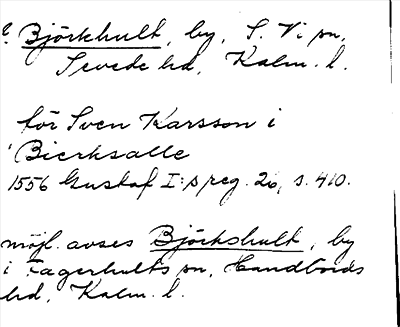 Björkhult, by, S. Vi sn,
Sevede hd, Kalm. l.
för Sven Karsson i
Bierksalle
1556 Gustaf I:s reg. 26, s. 410.
möjl. avses Björkshult, by
i Fagerhults sn, Handbörds
hd, Kalm. l.